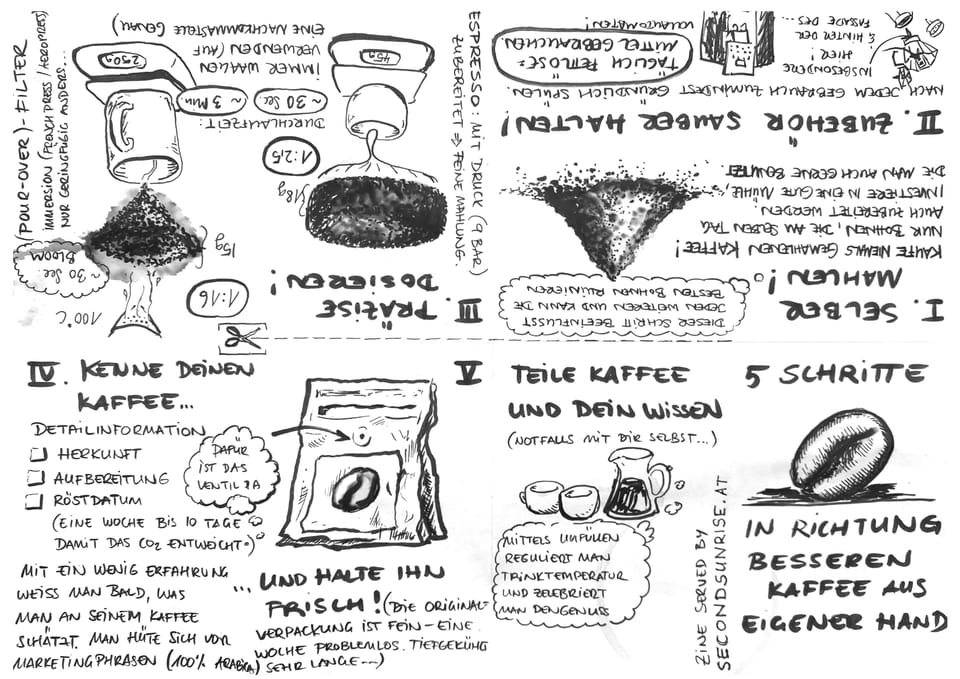 5 SCHRITTE
IN RICHTUNG
BESSEREN
KAFFEE AUS
EIGENER HAND
I. SELBER
MAHLEN!
DIESER SCHRITT BEEINFLUSST
JEDEN WEITEREN UND KANN DIE
BESTEN BOHNEN RUINIEREN
KAUFE NIEMALS GEMAHLENEN KAFFEE!
NUR BOHNEN, DIE AM SELBEN TAG
AUCH ZUBEREITET WERDEN.
INVESTIERE IN EINE GUTE MÜHLE
DIE MAN AUCH GERNE BENUTZT
II. ZUBEHÖR SAUBER HALTEN!
NACH JEDEM GEBRAUCH ZUMINDEST GRÜNDLICH SPÜLEN.
TÄGLICH FETTLÖSE-
MITTEL GEBRAUCHEN.
INSBESONDERE
HIER!
& HINTER DER
FASSADE DES
VOLLAUTOMATEN!
III. PRÄZISE
DOSIEREN!
ESPRESSO: MIT DRUCK (9 BAR)
ZUBEREITET ⇒ FEINE MAHLUNG.
18g
1:2,5
45g
DURCHLAUFZEIT:
~ 30 SEC
~ 3 MIN.
IMMER WAAGEN
VERWENDEN (AUF
EINE NACHKOMMASTELLE
GENAU)
1:16
100°C
~ 30 SEC.
BLOOM
15g
250g
(POUR-OVER)-FILTER
IMMERSION (FRENCH PRESS / AEROPRESS)
NUR GERINGFÜGIG ANDERES...
IV. KENNE DEINEN
KAFFEE...
DETAILINFORMATION
HERKUNFT
AUFBEREITUNG
RÖSTDATUM
(EINE WOCHE BIS 10 TAGE
DAMIT DAS CO2 ENTWEICHT.)
DAFÜR
IST DAS
VENTIL DA
MIT EIN WENIG ERFAHRUNG
WEISS MAN BALD, WAS
MAN AN SEINEM KAFFEE
SCHÄTZT. MAN HÜTE SICH VOR
MARKETINGPHRASEN (100% ARABICA)
... UND HALTE IHN
FRISCH! (DIE ORIGINAL-
VERPACKUNG IST FEIN - EINE
WOCHE PROBLEMLOS. TIEFGEKÜHLT
SEHR LANGE...)
V TEILE KAFFEE
UND DEIN WISSEN
(NOTFALLS MIT DIR SELBST...)
MITTELS UMFÜLLEN
REGULIERT MAN
TRINKTEMPERATUR
UND ZELEBRIERT
MAN DEN GENUSS
ZINE SERVED BY
SECONDSUNRISE.AT